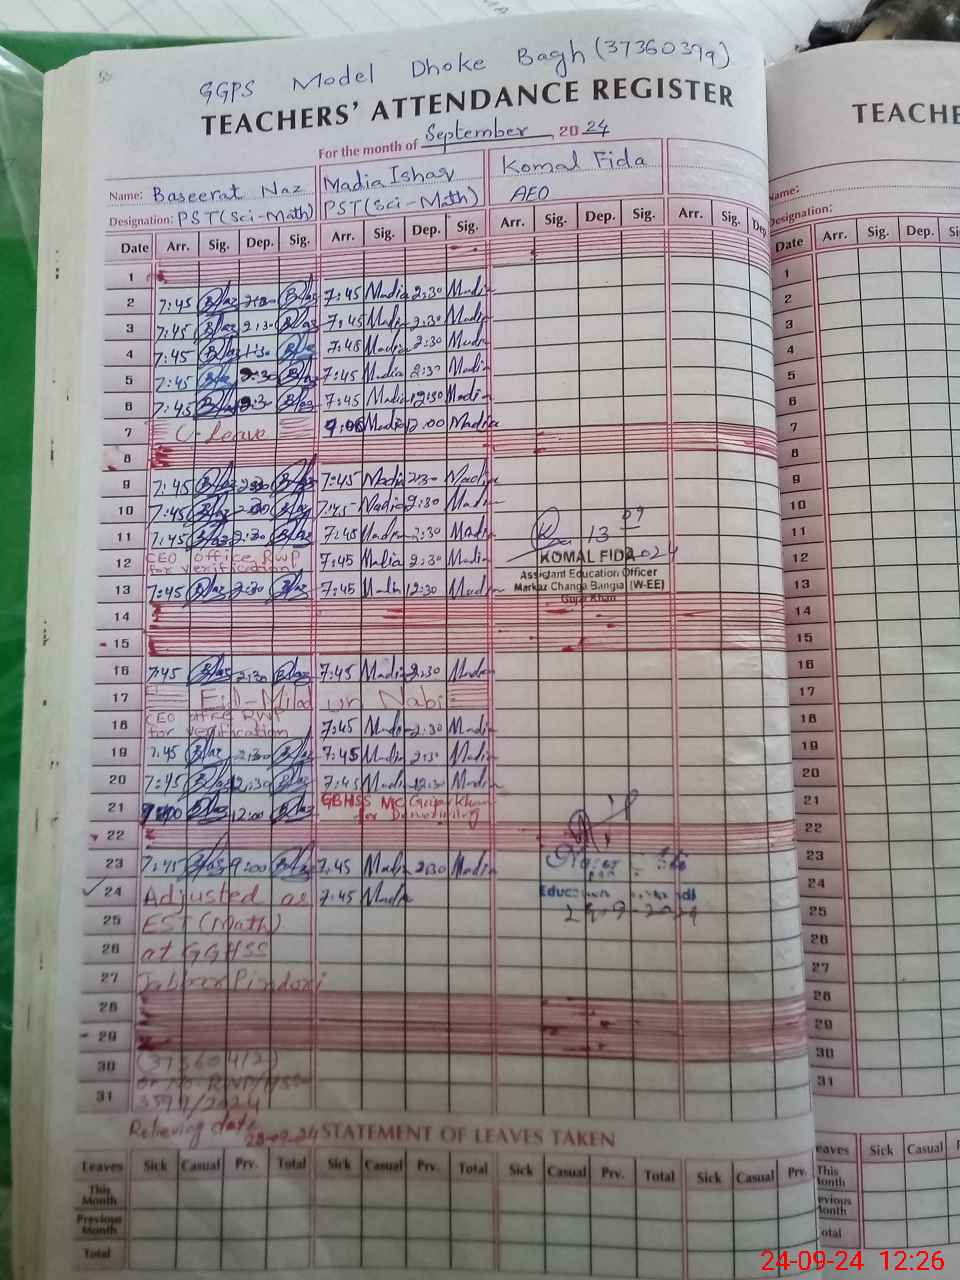 50
GGPS Model Dhoke Bagh (37360379)
TEACHERS' ATTENDANCE REGISTER
For the month of September 2024
Name: Baseerat Naz Madia Ishaq Komal Fida
Designation: PST(Sci-Math) PST(Sci-Math) AEO
Date Arr. Sig. Dep. Sig. Arr. Sig. Dep. Sig. Arr. Sig. Dep. Sig. Arr. Sig. Dep
1
2 7:45 7:45 Madia 2:30 Madia
3 7:45 2:30 7:45 Madia 2:30 Madia
4 7:45 1:30 7:45 Madia 2:30 Madia
5 7:45 2:30 7:45 Madia 2:30 Madia
6 7:45 7:45 Madia 12:30 Madia
7 C-Leave Madia 12:00 Madia
8
9 7:45 7:45 Madia 2:30 Madia
10 7:45 7:45 Madia 2:30 Madia
11 7:45 2:30 7:45 Madia 2:30 Madia
12 CEO office RWP for verification 7:45 Madia 2:30 Madia
13 7:45 2:30 7:45 Madia 12:30 Madia
13 09 2024
KOMAL FIDA
Assistant Education Officer
Markaz Changa Bangial (W-EE)
Gujar Khan
14
15
16 7:45 2:30 7:45 Madia 2:30 Madia
17 Eid-Milad un Nabi
18 CEO office RWP for verification 7:45 Madia 2:30 Madia
19 7:45 2:30 7:45 Madia 2:30 Madia
20 7:45 12:30 7:45 Madia 12:30 Madia
21 12:00 GBHSS MC Gujar Khan for
22
23 7:45 9:00 7:45 Madia 2:30 Madia
24 Adjusted as 7:45 Madia
25 EST (Math)
26 at GGHSS
27 Jabbar Pindori
28
29
30
31
Relieving date
STATEMENT OF LEAVES TAKEN
Leaves Sick Casual Prv. Total Sick Casual Prv. Total Sick Casual Prv. Total Sick Casual Prv.
This Month
Previous Month
Total
TEACHE
Name:
Designation:
Date Arr. Sig. Dep. Si
1
2
3
4
5
6
7
8
9
10
11
12
13
14
15
16
17
18
19
20
21
22
23
24
25
26
27
28
29
30
31
eaves Sick Casual
This
Month
evious
Month
otal
24-09-24 12:26